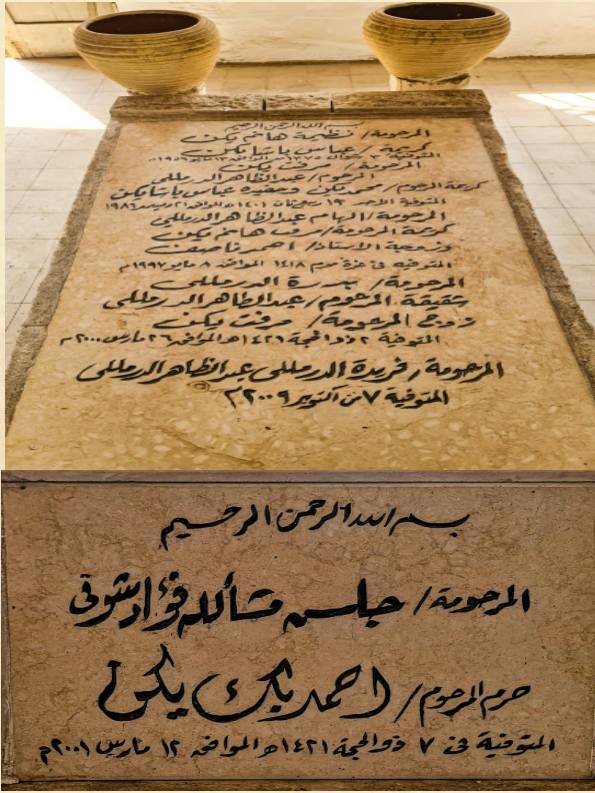 بسم الله الرحمن الرحيم
المرحومة / نظيمة هانم يكن
كريمة / عباس باشا يكن
المتوفية ٣ شوال ١٣٧٥
المرحومة / مرفت يكن
المرحوم / عبدالظاهر الدرمللى
كريمة المرحوم / محمد يكن وحفيدة عباس باشا يكن
المتوفية الاحد ١٩ ربيع ثان ١٤٠١ هـ الموافق
المرحومة / الهام عبدالظاهر الدرمللى
كريمة المرحومة / مرفت هانم يكن
وزوجة الاستاذ / احمد ناصف
المتوفيه فى غرة محرم ١٤١٨ الموافق ٨ مايو ١٩٩٧م
المرحومة / بدرة الدرمللى
شقيقة المرحوم / عبدالظاهر الدرمللى
زوج المرحومة / مرفت يكن
المتوفية ٢ ذو الحجة ١٤٢٦ هـ الموافق ٢٦ مارس ٢٠٠٠م
المرحومة / فريدة الدرمللى عبدالظاهر الدرمللى
المتوفية ٧ من اكتوبر ٢٠٠٩م
بسم الله الرحمن الرحيم
المرحومة / جلسن مشأالله فؤاد شوقى
حرم المرحوم / احمد بك يكن
المتوفية فى ٧ ذو الحجة ١٤٢١ هـ الموافق ١٢ مارس ٢٠٠١م